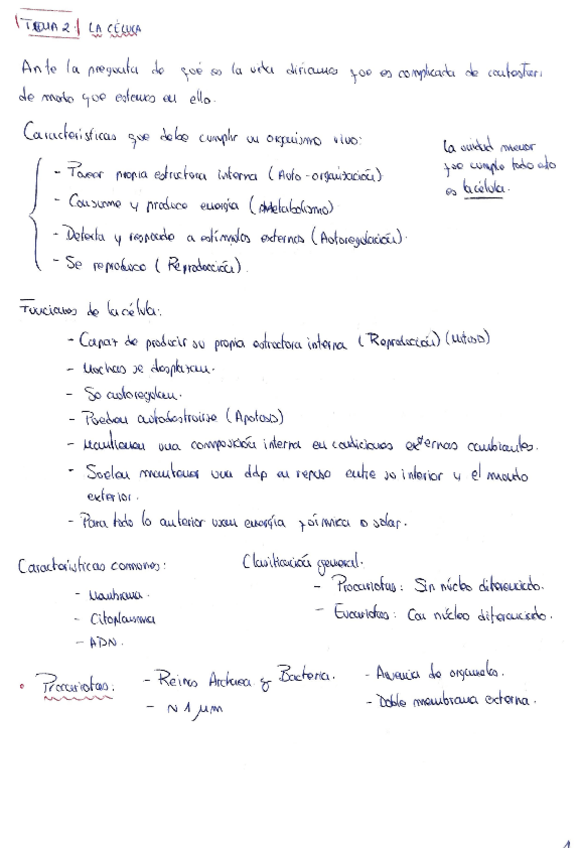 TEMA 2. LA CÉLULA
Ante la pregunta de qué es la vida diriamos que es complicada de contestar:
de modo que estemos en ello.
Características que debe cumplir un organismo vivo:
- Poseer propia estructura interna (Auto-organización)
- Consume y produce energía (Metabolismo)
- Detecta y responde a estímulos externos (Autoregulación).
- Se reproduce (Reproducción).
La unidad menor
que cumple todo ello
es la célula.
Funciones de la célula:
- Capaz de producir su propia estructura interna (Reproducción) (Mitosis)
- Muchas se desplazan.
- Se autoregulan.
- Pueden autodestruirse (Apotosis)
- Mantienen una composición interna en condiciones externas cambiantes.
- Suelen mantener una ddp en reposo entre su interior y el mundo
exterior.
- Para todo lo anterior usan energía química o solar.
Características comunes:
- Membrana.
- Citoplasma
- ADN.
Clasificación general.
- Procariotas: Sin núcleo diferenciado.
- Eucariotas: Con núcleo diferenciado.
• Procariotas:
- Reinos Archaea y Bacteria.
- ~ 1 μm
- Ausencia de organulos.
- Doble membrana externa.
1